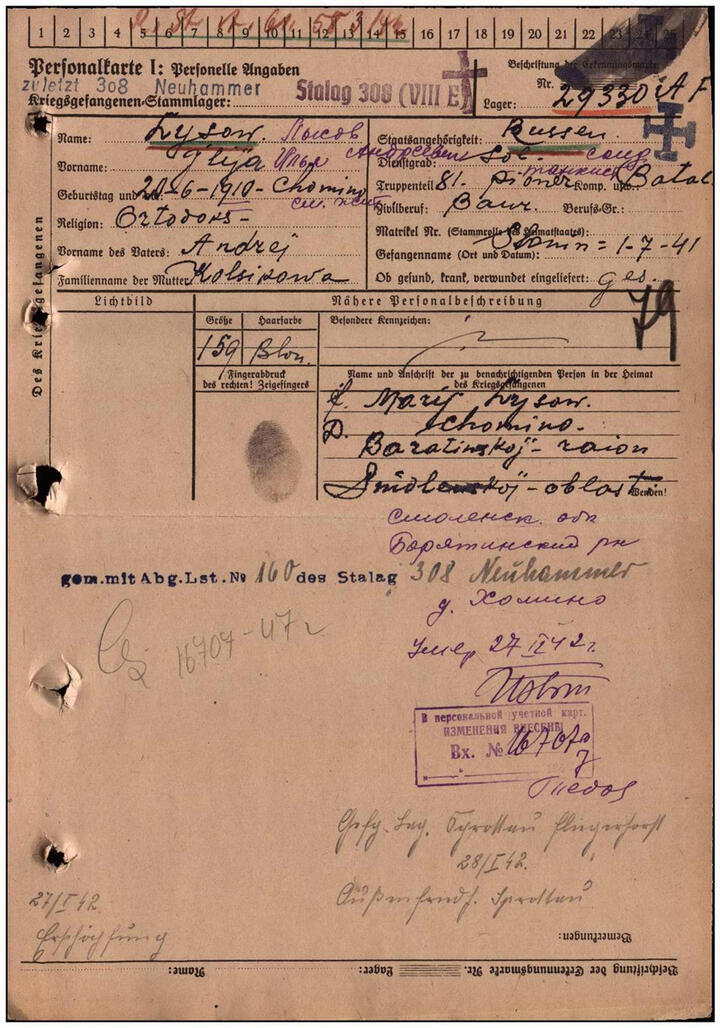 1 2 3 4 5 6 7 8 9 10 11 12 13 14 15 16 17 18 19 20 21 22 23 24 25
Personalkarte I: Personelle Angaben
Beschriftung der Erkennungsmarke
zuletzt 308 Neuhammer
Nr. 29330
Kriegsgefangenen-Stammlager: Stalag 308 (VIII E)
Lager:
Des Kriegsgefangenen
Name: Lysow Лысов
Staatsangehörigkeit: Russen
Vorname: Ilija Илья Андреевич
Dienstgrad: Sol. солд
танкист
Geburtstag und 20-6-1910- Chomino
Truppenteil 81. Pioner Komp. usw. Batal.
см. жит.
Religion: Ortodoxs-
Zivilberuf: Baur. Berufs-Gr.:
Matrikel Nr. (Stammrolle des Heimatstaats):
Vorname des Vaters: Andrej
Gefangenname (Ort und Datum): 1-7-41
Familienname der Mutter: Kolsikowa
Ob gesund, krank, verwundet eingeliefert: ges.
79
Lichtbild
Nähere Personalbeschreibung
Größe Haarfarbe
Besondere Kennzeichen:
159 Blon.
Fingerabdruck
des rechten! Zeigefingers
Name und Anschrift der zu benachrichtigenden Person in der Heimat
des Kriegsgefangenen
f. Marij Lysow.
D. Chomino.
Baratinskoj-raion
Smolenskoj-oblast
Wenden!
Смоленск. обл
Барятинский рн
gem.mit Abg.Lst.№ 160 des Stalag 308 Neuhammer
д. Хомино
16707-47г
Умер 27 II 42г.
В персональной учетной карт.
ИЗМЕНЕНИЯ ВНЕСЕНЫ
Вх. № 16707
Gefg. Lag. Sprottau Fliegerhorst
28/I 42.
27/I 42.
Außenfriedh. Sprottau
Erschöpfung
Bemerkungen:
Name: Lager: Beschriftung der Erkennungsmarke Nr.